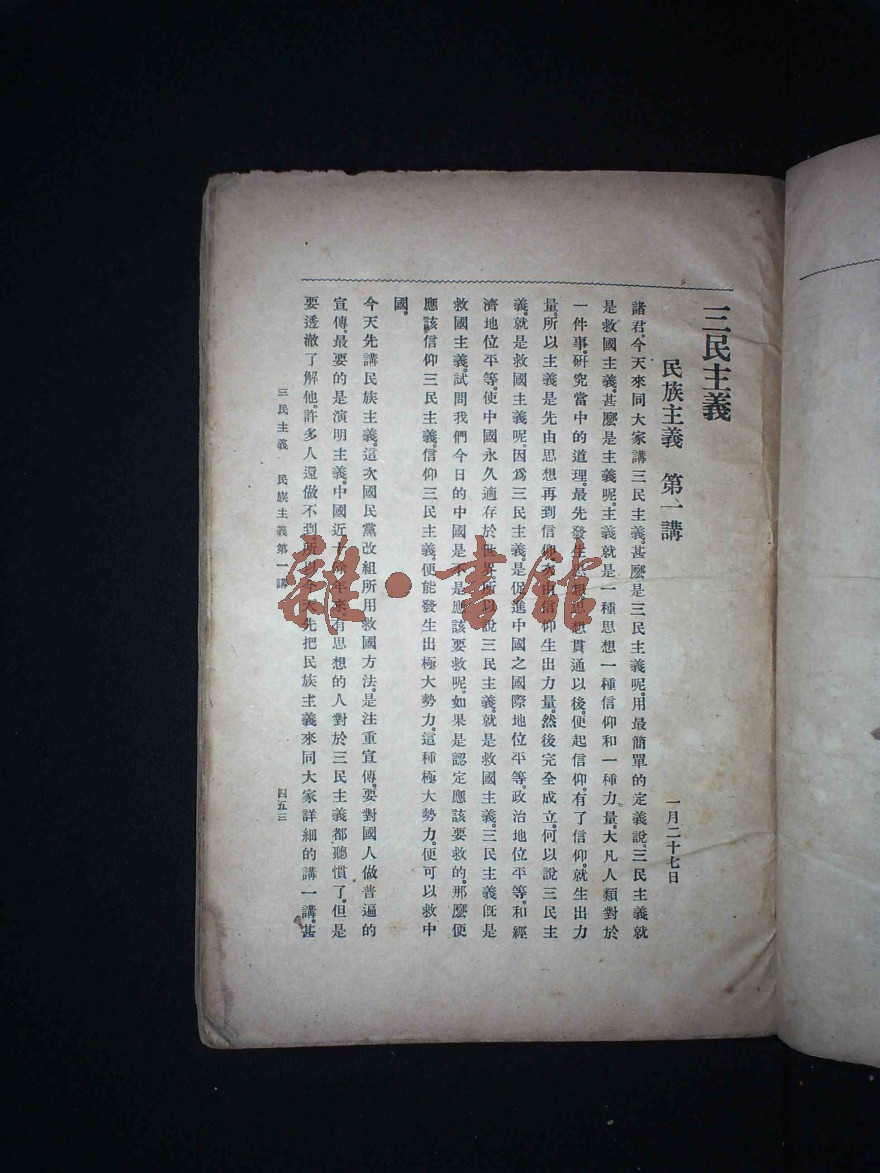 三民主義
民族主義 第一講
一月二十七日
諸君、今天來同大家講三民主義。甚麼是三民主義呢。用最簡單的定義說。三民主義就
是救國主義。甚麼是主義呢。主義就是一種思想一種信仰和一種力量。大凡人類對於
一件事。研究當中的道理。最先發生思想。思想貫通以後。便起信仰。有了信仰。就生出力
量。所以主義是先由思想再到信仰。次由信仰生出力量。然後完全成立。何以說三民主
義。就是救國主義呢。因爲三民主義。是促進中國之國際地位平等。政治地位平等。和經
濟地位平等。使中國永久適存於世界。所以說三民主義。就是救國主義。三民主義既是
救國主義。試問我們今日的中國是不是應該要救呢。如果是認定應該要救的。那麼便
應該信仰三民主義。信仰三民主義。便能發生出極大勢力。這種極大勢力。便可以救中
國。
今天先講民族主義。這次國民黨改組所用救國方法。是注重宣傳。要對國人做普遍的
宣傳。最要的是演明主義。中國近十餘年來。有思想的人對於三民主義都聽慣了。但是
要透澈了解他。許多人還做不到。所以今天先把民族主義來同大家詳細的講一講。甚
三民主義 民族主義第一講 四五三
雜·書館